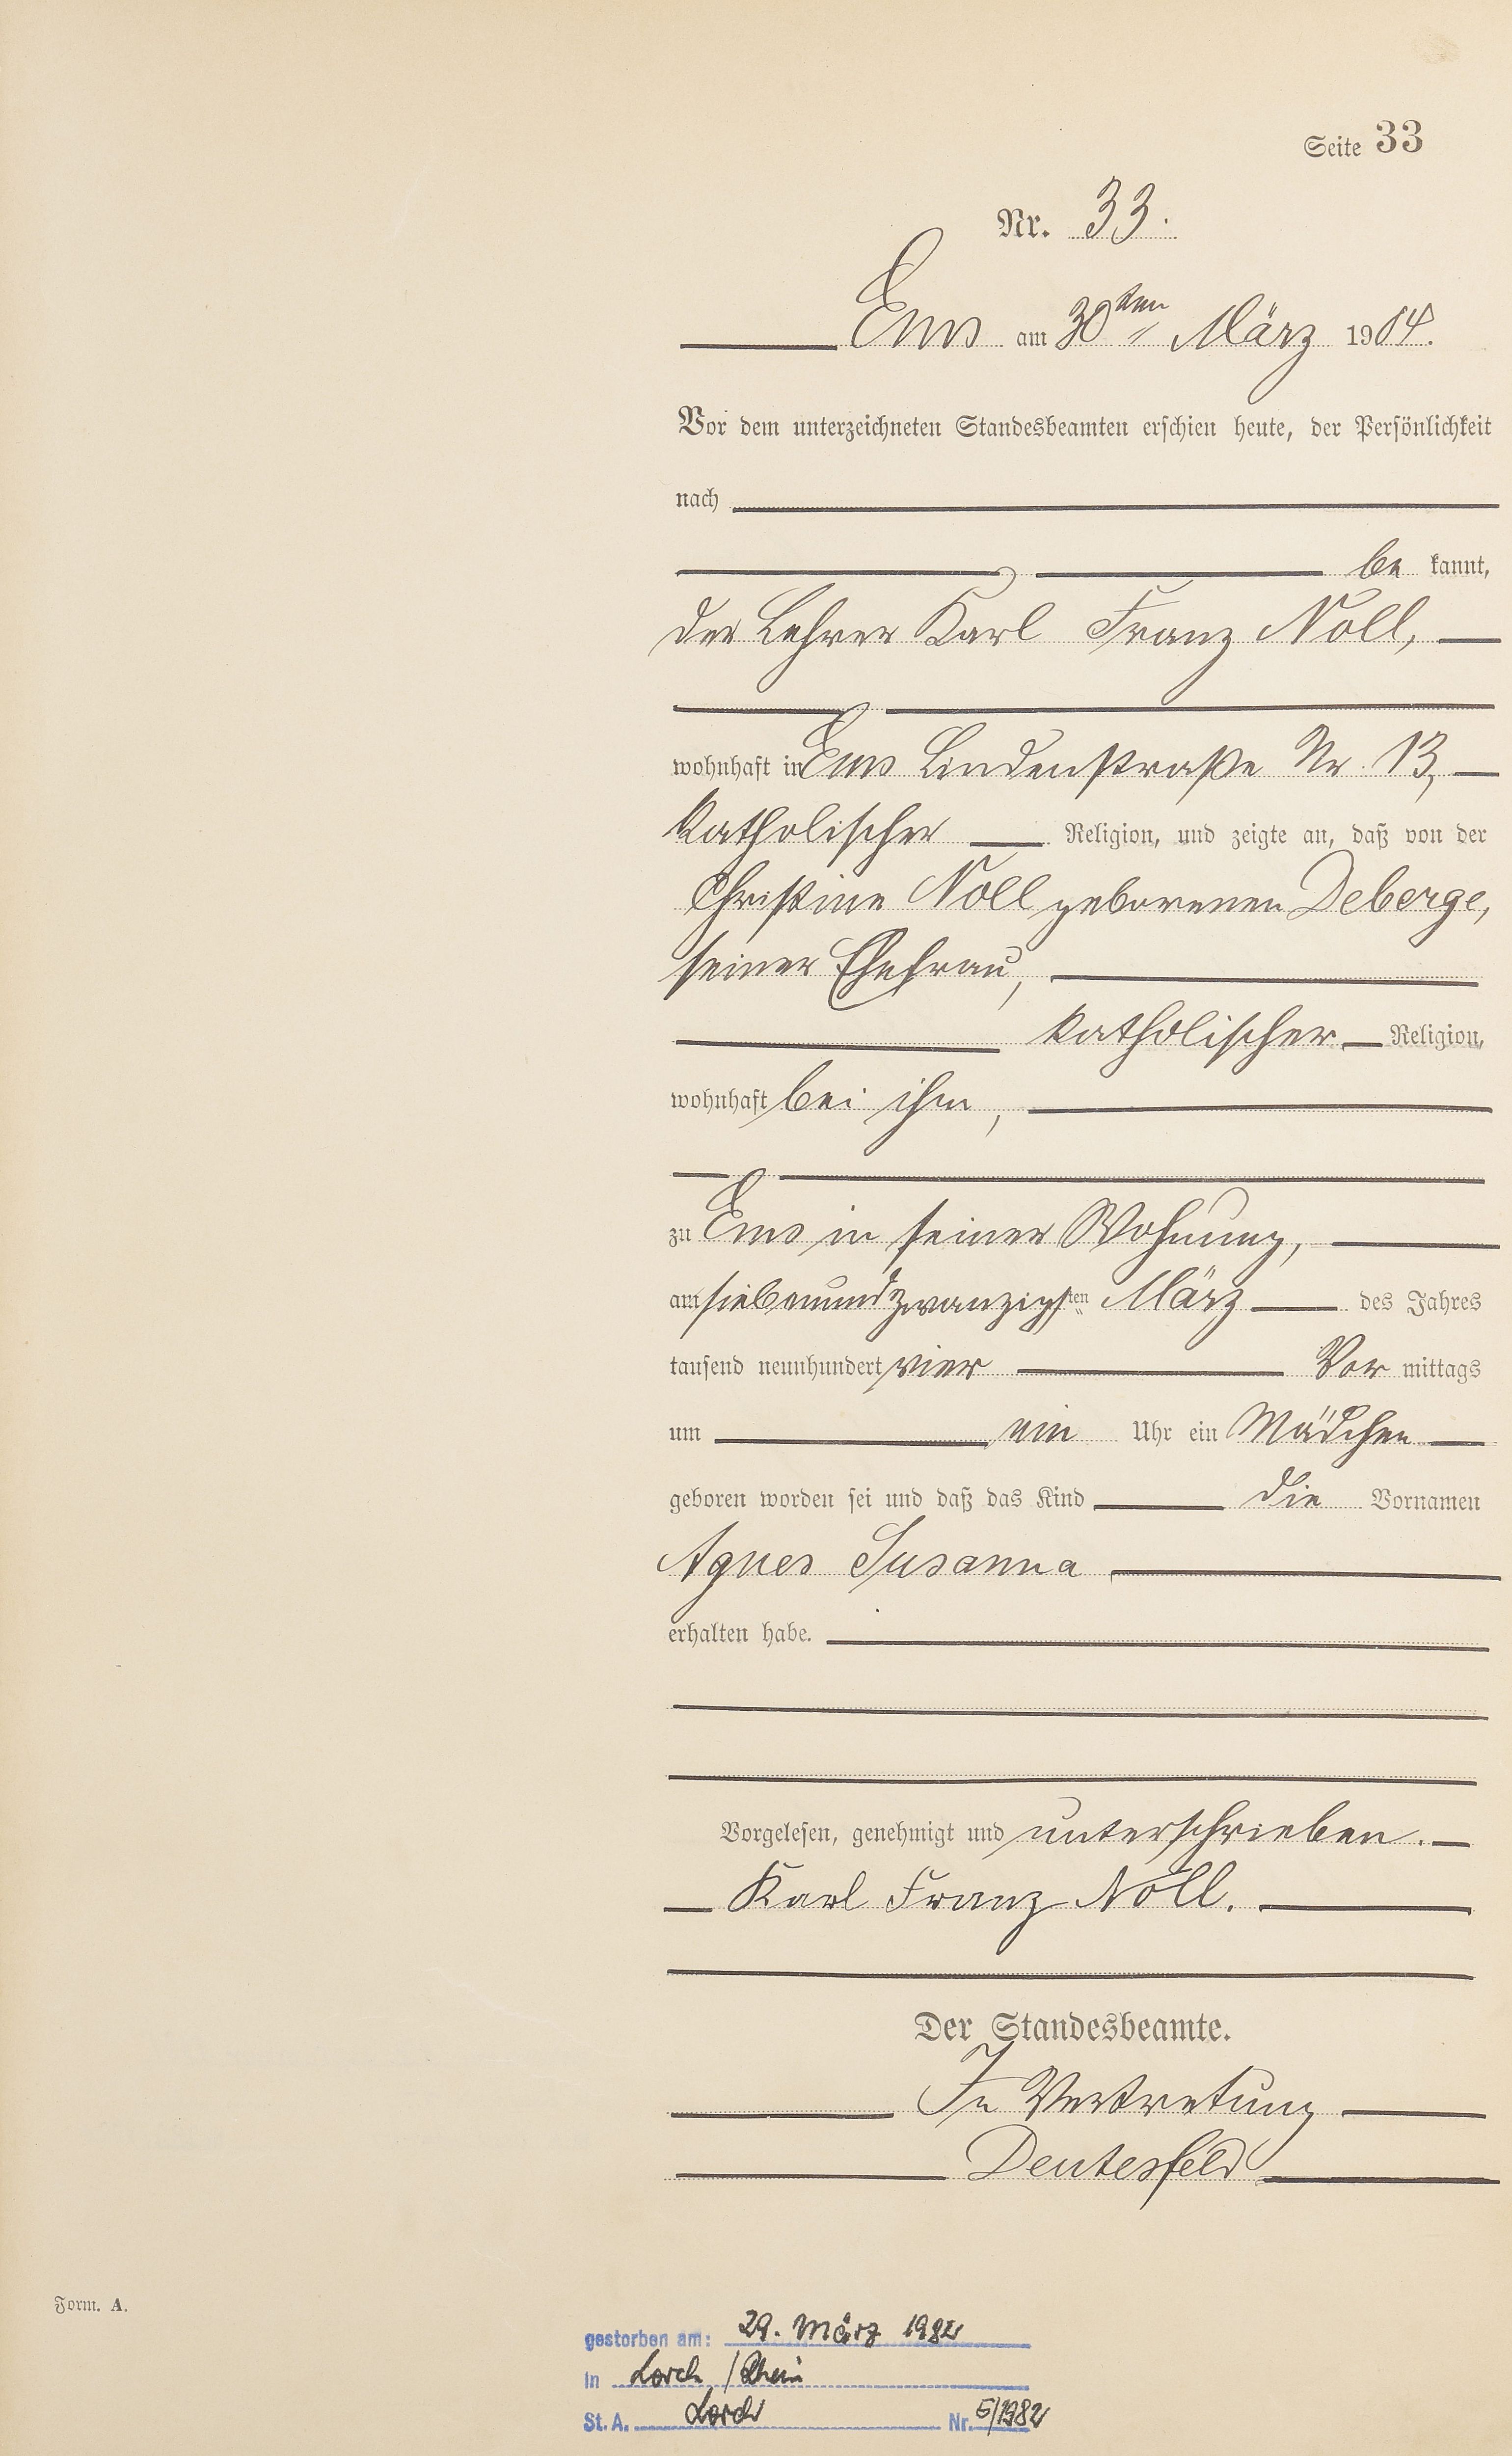 Seite 33
Nr. 33.
Ems am 30ten März 1904.
Vor dem unterzeichneten Standesbeamten erschien heute, der Persönlichkeit
nach
be kannt,
der Lehrer Karl Franz Noll,
wohnhaft in Ems Lindenstraße Nr. 13,
katholischer Religion, und zeigte an, daß von der
Christine Noll geborenen Deberge,
seiner Ehefrau,
katholischer Religion,
wohnhaft bei ihm,
zu Ems in seiner Wohnung,
am siebenundzwanzigsten März des Jahres
tausend neunhundert vier Vor mittags
um ein Uhr ein Mädchen
geboren worden sei und daß das Kind die Vornamen
Agnes Susanna
erhalten habe.
Vorgelesen, genehmigt und unterschrieben.
Karl Franz Noll.
Der Standesbeamte.
In Vertretung
Deutesfeld
Form. A.
gestorben am: 29. März 1982
in Lorch / Rhein
St. A. Lorch Nr. 5/1982